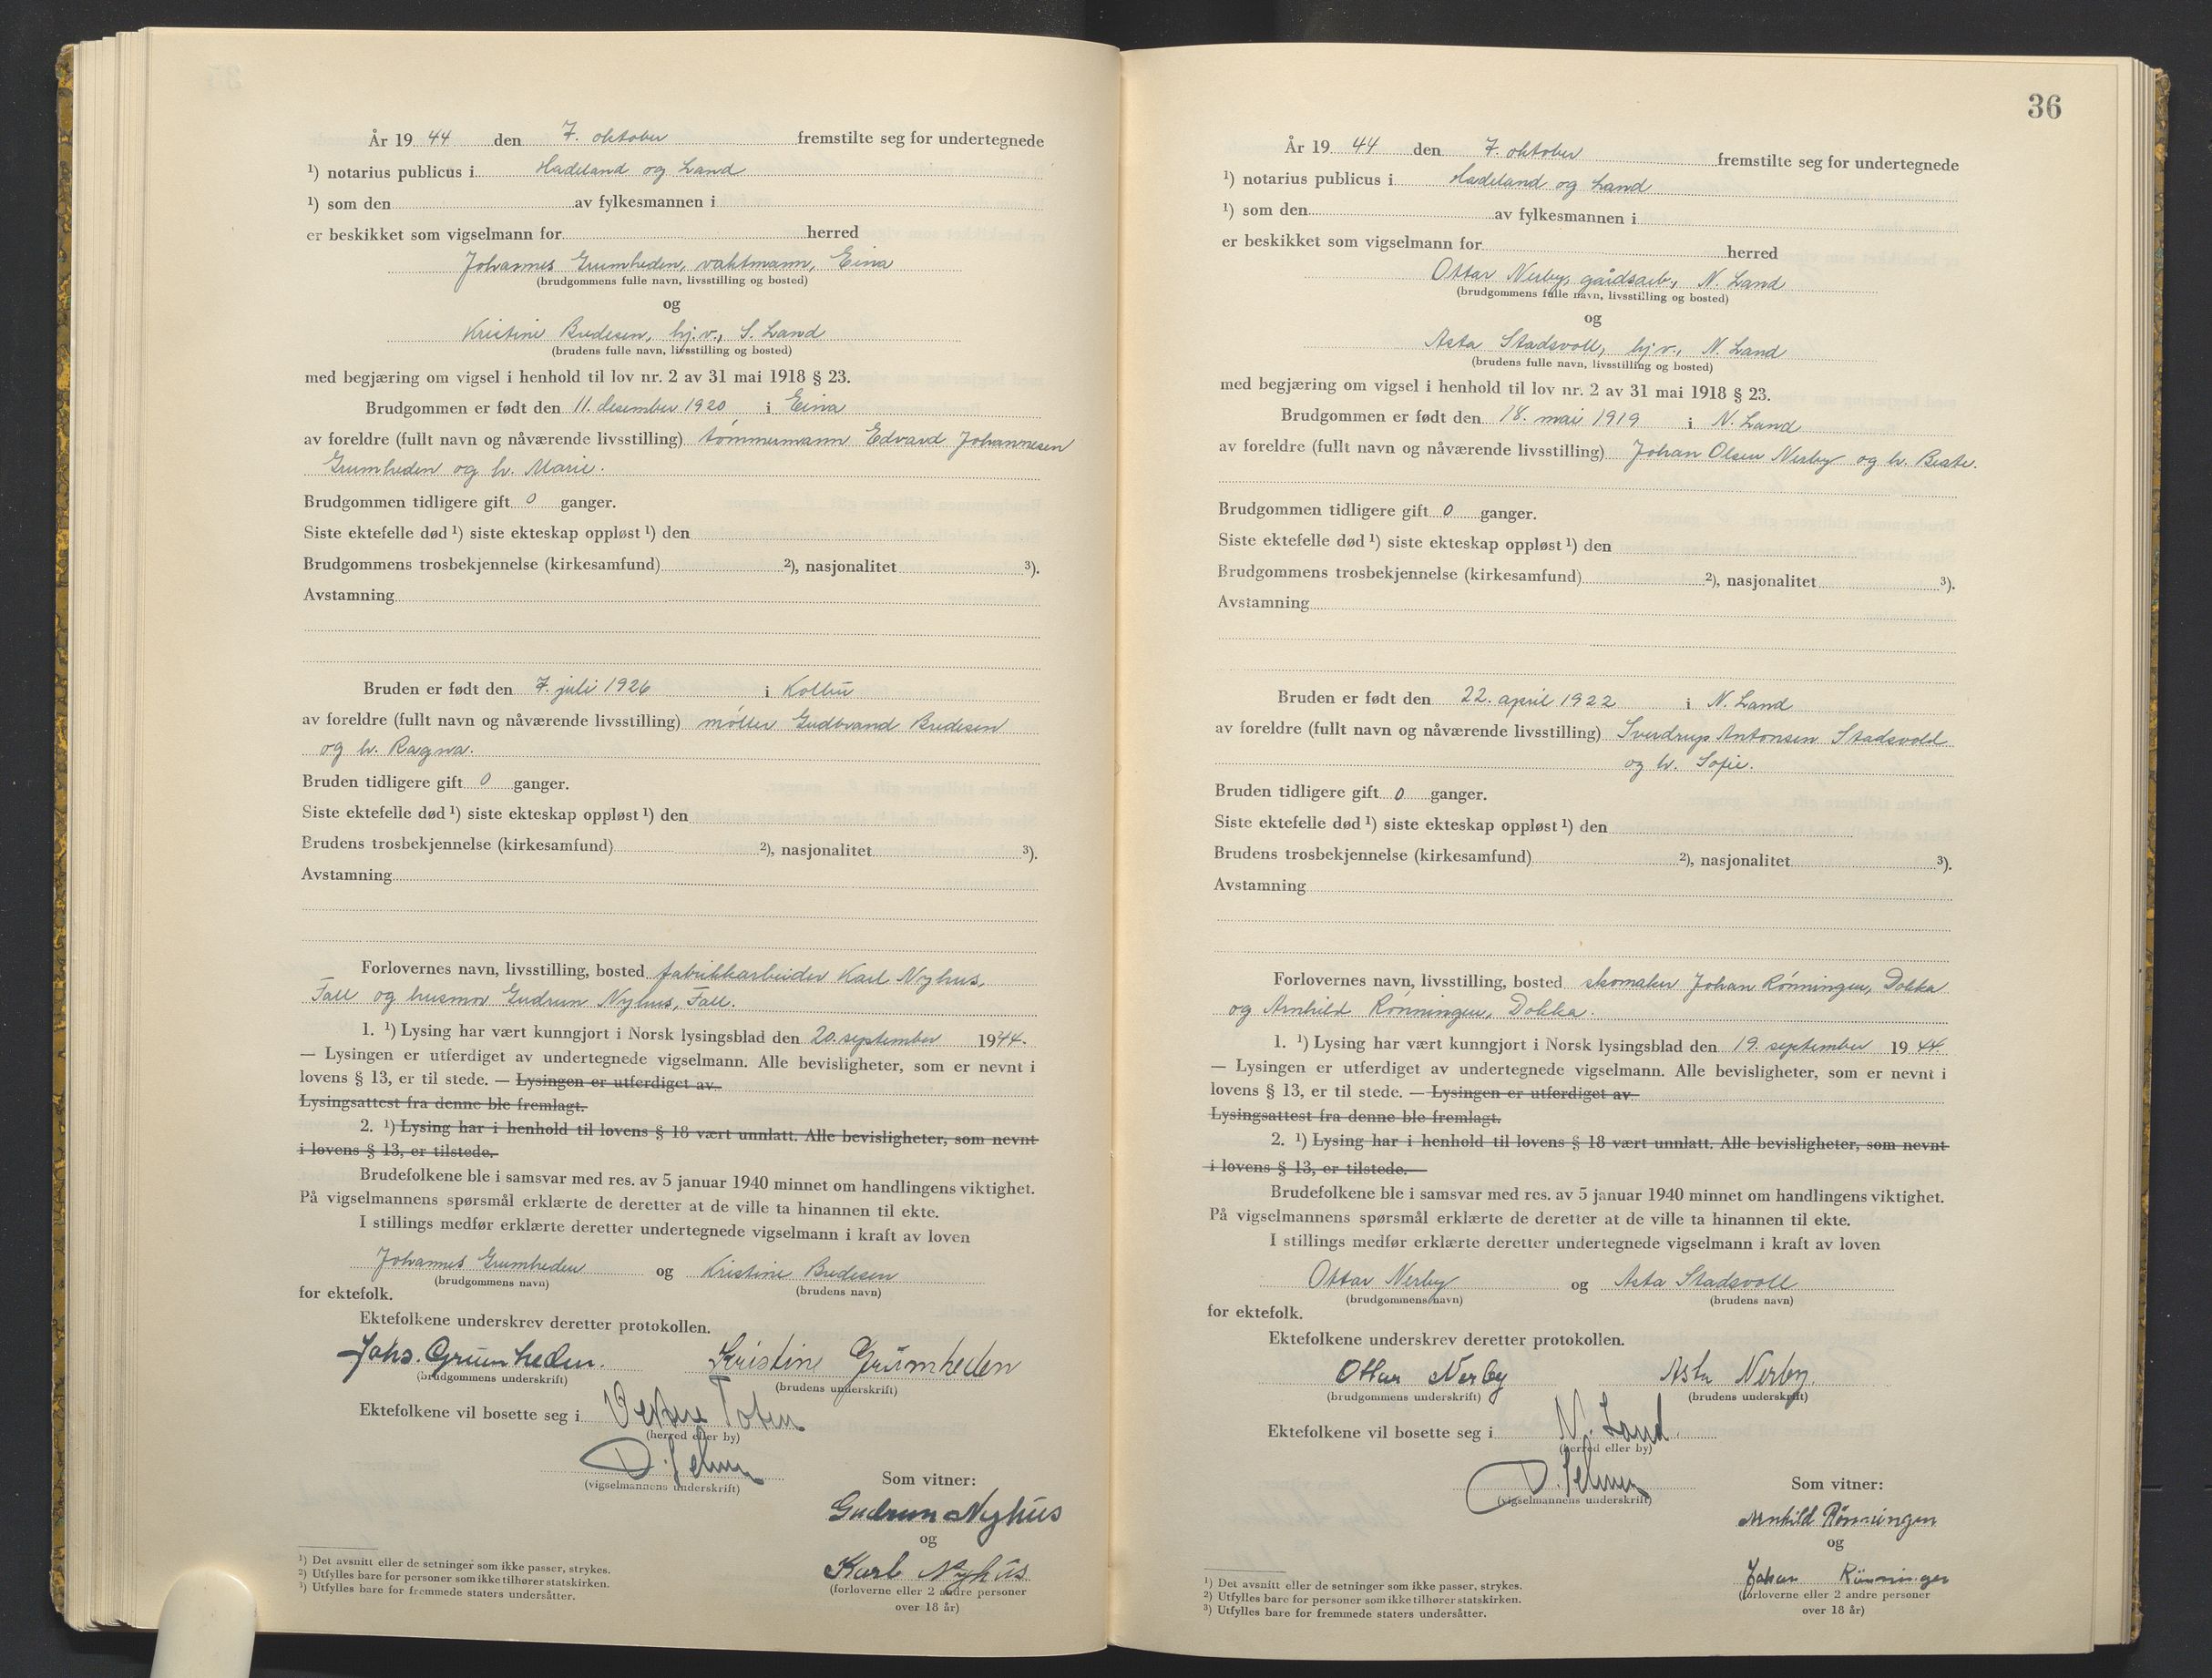 År 19 44 den 7. oktober fremstilte seg for undertegnede
¹) notarius publicus i Hadeland og Land
¹) som den av fylkesmannen i
er beskikket som vigselmann for herred
Johannes Grumheden, vaktmann, Eina
(brudgommens fulle navn, livsstilling og bosted)
og
Kristine Bredesen, hj.v., S. Land
(brudens fulle navn, livsstilling og bosted)
med begjæring om vigsel i henhold til lov nr. 2 av 31 mai 1918 § 23.
Brudgommen er født den 11. desember 1920 i Eina
av foreldre (fullt navn og nåværende livsstilling) tømmermann Edvard Johannesen
Grumheden og h. Marie.
Brudgommen tidligere gift 0 ganger.
Siste ektefelle død ¹) siste ekteskap oppløst ¹) den
Brudgommens trosbekjennelse (kirkesamfund) ²), nasjonalitet ³).
Avstamning
Bruden er født den 7. juli 1926 i Kolbu
av foreldre (fullt navn og nåværende livsstilling) møller Gudbrand Bredesen
og h. Ragna.
Bruden tidligere gift 0 ganger.
Siste ektefelle død ¹) siste ekteskap oppløst ¹) den
Brudens trosbekjennelse (kirkesamfund) ²), nasjonalitet ³).
Avstamning
Forlovernes navn, livsstilling, bosted fabrikkarbeider Karl Nyhus,
Fall og husmor Gudrun Nyhus, Fall.
1. ¹) Lysing har vært kunngjort i Norsk lysingsblad den 20. september 1944.
— Lysingen er utferdiget av undertegnede vigselmann. Alle bevisligheter, som er nevnt i
lovens § 13, er til stede. — Lysingen er utferdiget av
Lysingsattest fra denne ble fremlagt.
2. ¹) Lysing har i henhold til lovens § 18 vært unnlatt. Alle bevisligheter, som nevnt
i lovens § 13, er tilstede.
Brudefolkene ble i samsvar med res. av 5 januar 1940 minnet om handlingens viktighet.
På vigselmannens spørsmål erklærte de deretter at de ville ta hinannen til ekte.
I stillings medfør erklærte deretter undertegnede vigselmann i kraft av loven
Johannes Grumheden og Kristine Bredesen
(brudgommens navn) (brudens navn)
for ektefolk.
Ektefolkene underskrev deretter protokollen.
Johs. Grumheden. Kristine Grumheden
(brudgommens underskrift) (brudens underskrift)
Ektefolkene vil bosette seg i Vestre Toten
(herred eller by)
(vigselmannens underskrift)
Som vitner:
Gudrun Nyhus
og
Karl Nyhus
(forloverne eller 2 andre personer
over 18 år)
¹) Det avsnitt eller de setninger som ikke passer, strykes.
²) Utfylles bare for personer som ikke tilhører statskirken.
³) Utfylles bare for fremmede staters undersåtter.
36
År 19 44 den 7. oktober fremstilte seg for undertegnede
¹) notarius publicus i Hadeland og Land
¹) som den av fylkesmannen i
er beskikket som vigselmann for herred
Ottar Nerby, gårdsarb., N. Land
(brudgommens fulle navn, livsstilling og bosted)
og
Asta Stadsvoll, hj.v., N. Land
(brudens fulle navn, livsstilling og bosted)
med begjæring om vigsel i henhold til lov nr. 2 av 31 mai 1918 § 23.
Brudgommen er født den 18. mai 1919 i N. Land
av foreldre (fullt navn og nåværende livsstilling) Johan Olsen Nerby og h. Beate.
Brudgommen tidligere gift 0 ganger.
Siste ektefelle død ¹) siste ekteskap oppløst ¹) den
Brudgommens trosbekjennelse (kirkesamfund) ²), nasjonalitet ³).
Avstamning
Bruden er født den 22. april 1922 i N. Land
av foreldre (fullt navn og nåværende livsstilling) Sverdrup Antonsen Stadsvold
og h. Sofie.
Bruden tidligere gift 0 ganger.
Siste ektefelle død ¹) siste ekteskap oppløst ¹) den
Brudens trosbekjennelse (kirkesamfund) ²), nasjonalitet ³).
Avstamning
Forlovernes navn, livsstilling, bosted skomaker Johan Rønningen, Dokka
og Arnhild Rønningen, Dokka.
1. ¹) Lysing har vært kunngjort i Norsk lysingsblad den 19. september 19 44.
— Lysingen er utferdiget av undertegnede vigselmann. Alle bevisligheter, som er nevnt i
lovens § 13, er til stede. — Lysingen er utferdiget av
Lysingsattest fra denne ble fremlagt.
2. ¹) Lysing har i henhold til lovens § 18 vært unnlatt. Alle bevisligheter, som nevnt
i lovens § 13, er tilstede.
Brudefolkene ble i samsvar med res. av 5 januar 1940 minnet om handlingens viktighet.
På vigselmannens spørsmål erklærte de deretter at de ville ta hinannen til ekte.
I stillings medfør erklærte deretter undertegnede vigselmann i kraft av loven
Ottar Nerby og Asta Stadsvoll
(brudgommens navn) (brudens navn)
for ektefolk.
Ektefolkene underskrev deretter protokollen.
Ottar Nerby Asta Nerby.
(brudgommens underskrift) (brudens underskrift)
Ektefolkene vil bosette seg i N. Land
(herred eller by)
(vigselmannens underskrift)
Som vitner:
Arnhild Rønningen
og
Johan Rønningen
(forloverne eller 2 andre personer
over 18 år)
¹) Det avsnitt eller de setninger som ikke passer, strykes.
²) Utfylles bare for personer som ikke tilhører statskirken.
³) Utfylles bare for fremmede staters undersåtter.